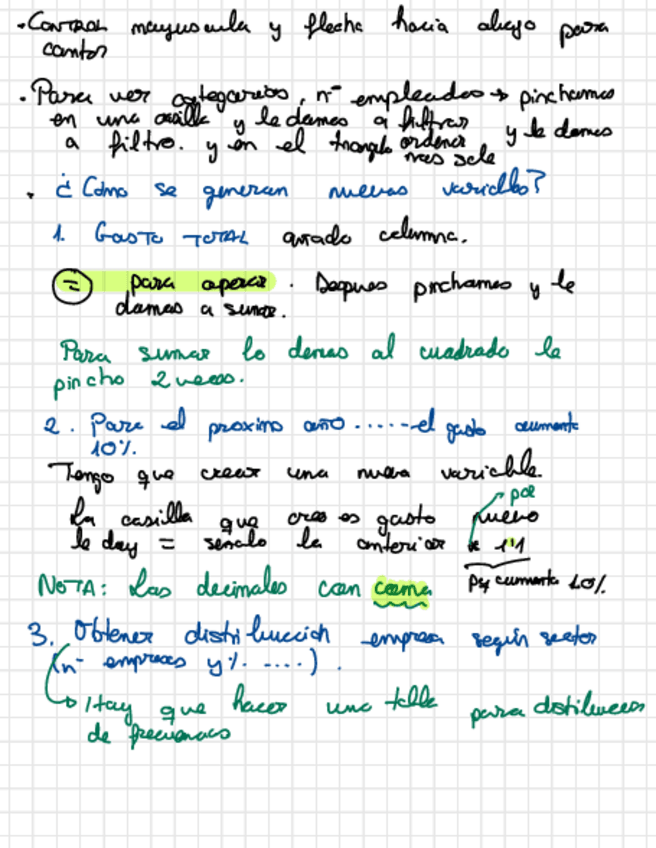 • CONTROL mayuscula y flecha hacia abajo para
contar
• Para ver categorias, nº empleados → pinchamos
en una casilla y le damos a filtrar y le damos
a filtro. y en el triangulo ordenar
mas sale
• ¿Cómo se generan nuevas variables?
1. GASTO TOTAL añado columna.
= para operar. Despues pinchamos y le
damos a sumar.
Para sumar lo demas al cuadrado le
pincho 2 veces.
2. Para el proximo año ......el gasto aumenta
10%.
Tengo que crear una nueva variable.
por
La casilla que creo es gasto nuevo
le doy = señalo la anterior * 1'1
NOTA: Las decimales con coma
Pq aumenta 10%.
3. Obtener distribuccion empresa según sector
(nº empresas y %. ....).
↳ Hay que hacer una tabla para distibucces
de frecuencias